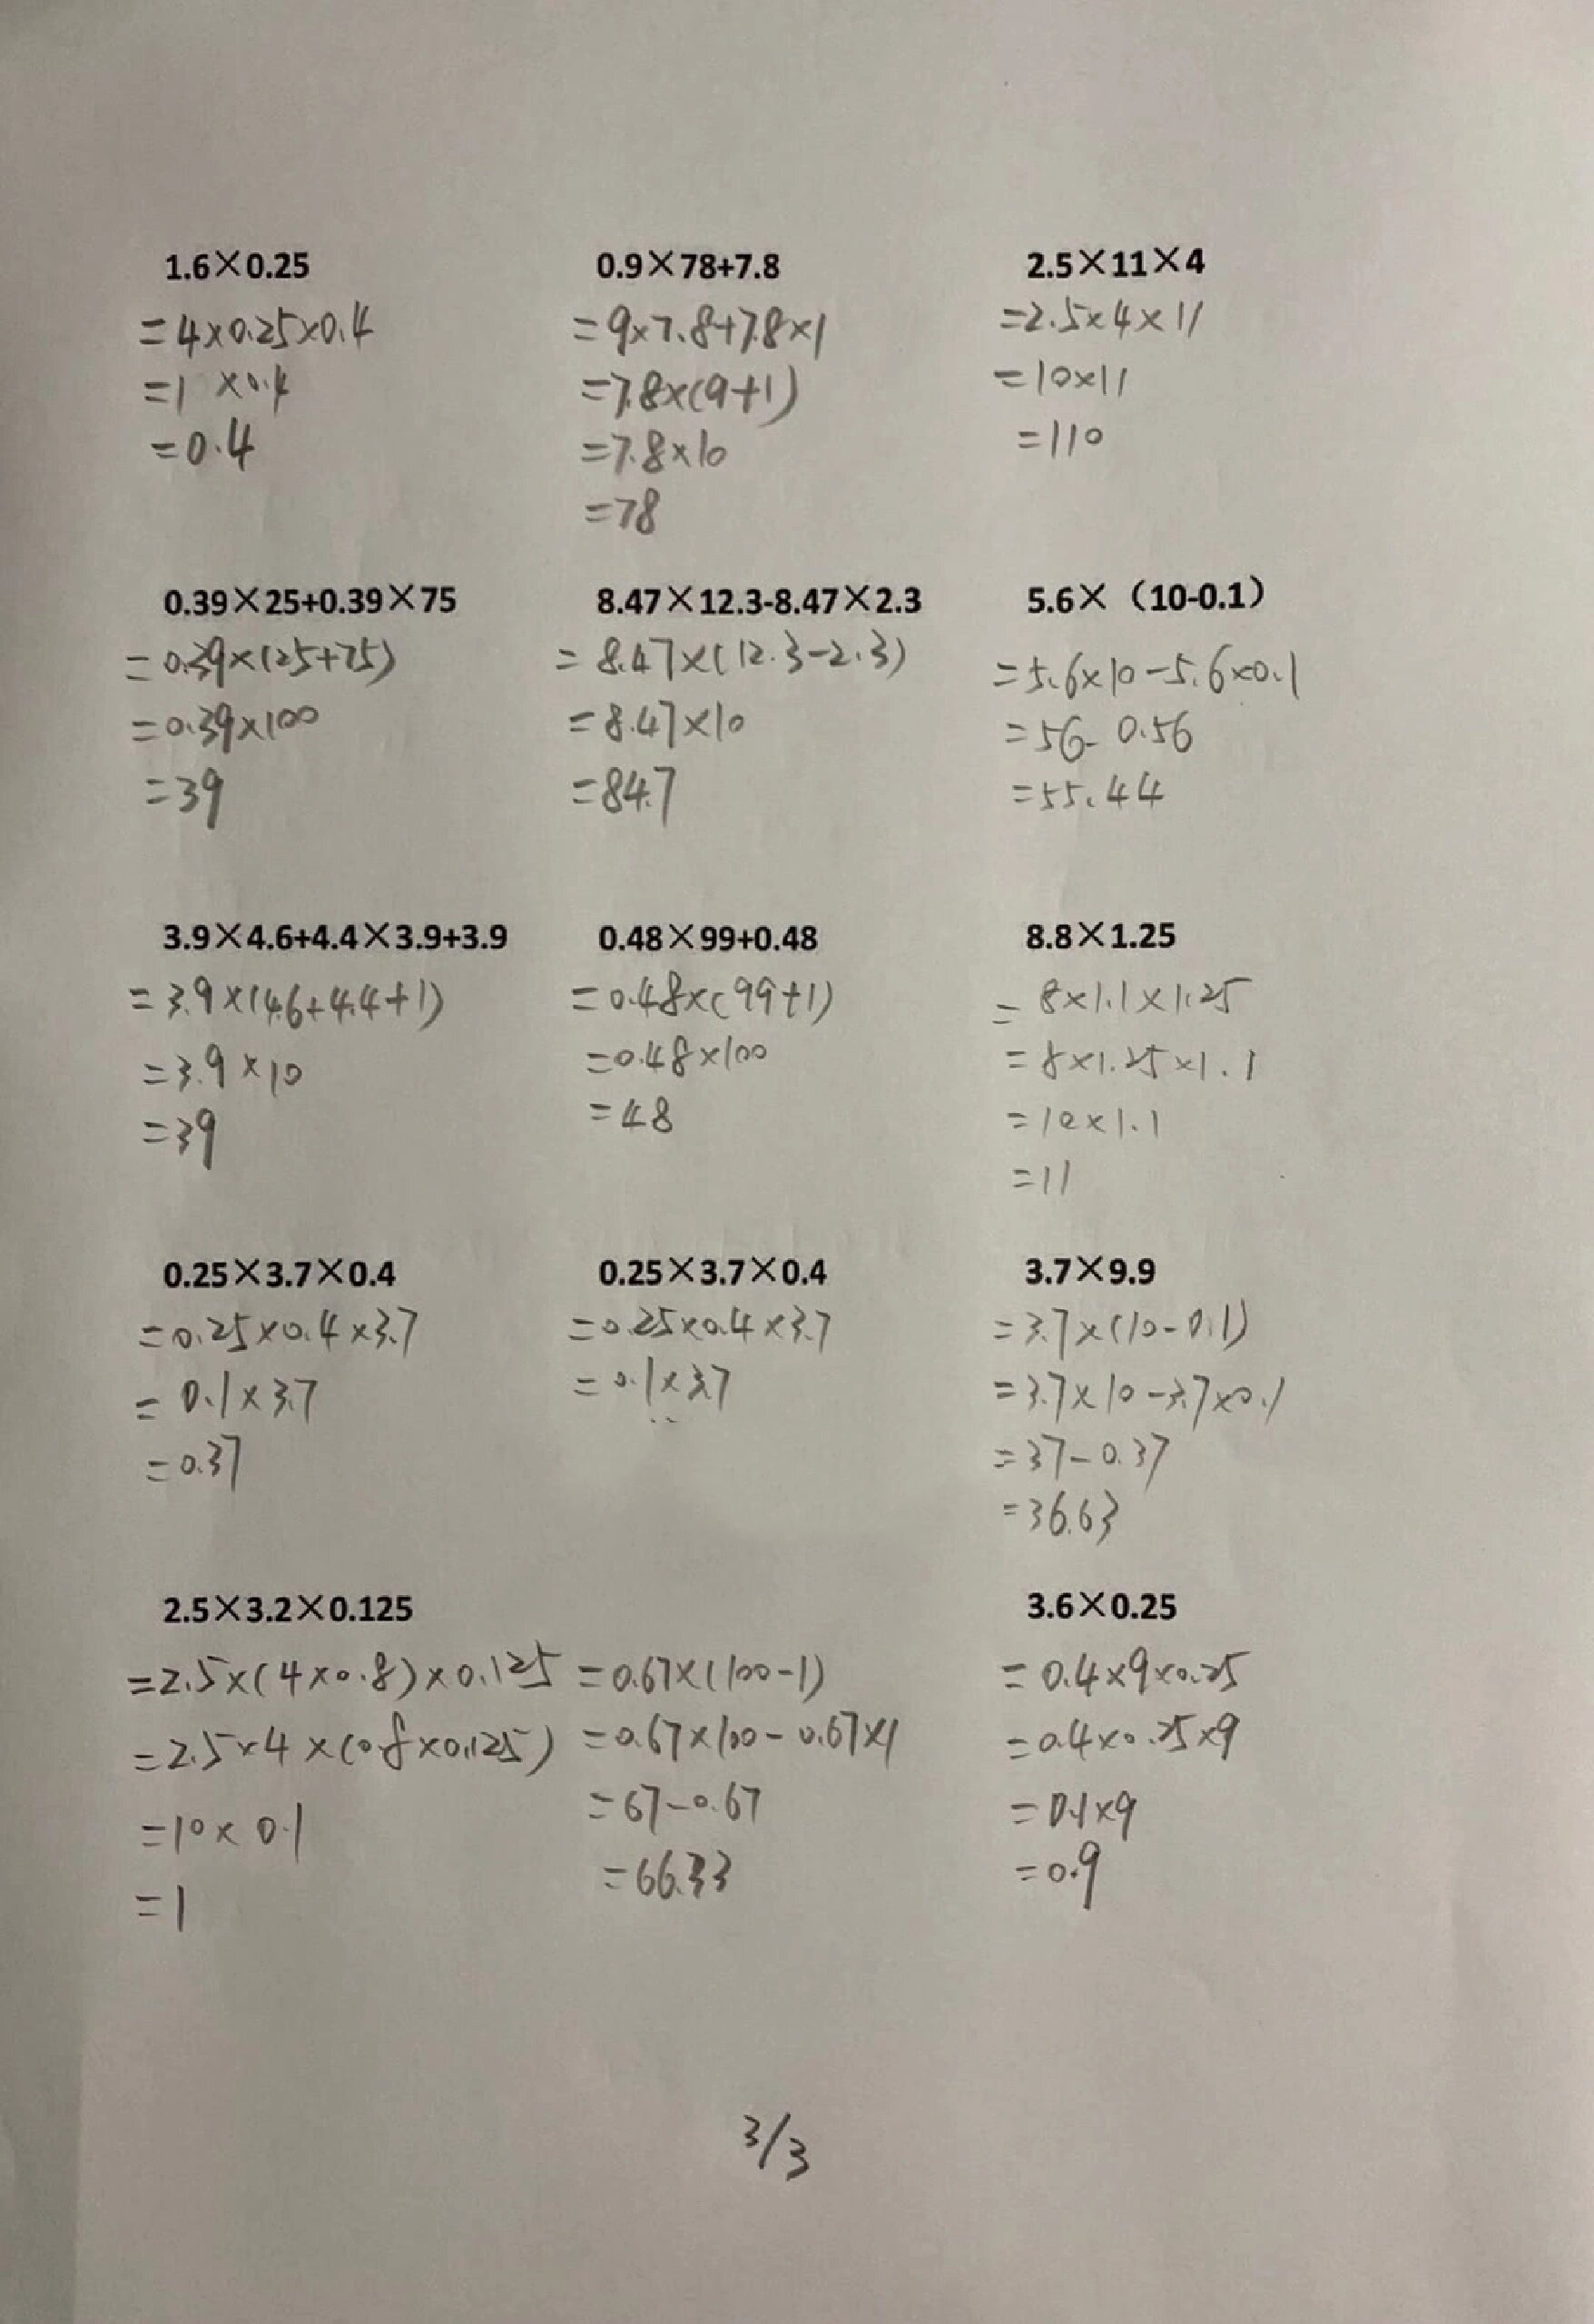 1.6×0.25
=4×0.25×0.4
=1 ×0.4
=0.4
0.9×78+7.8
=9×7.8+7.8×1
=7.8×(9+1)
=7.8×10
=78
2.5×11×4
=2.5×4×11
=10×11
=110
0.39×25+0.39×75
=0.39×(25+75)
=0.39×100
=39
8.47×12.3-8.47×2.3
=8.47×(12.3-2.3)
=8.47×10
=84.7
5.6×（10-0.1）
=5.6×10-5.6×0.1
=56-0.56
=55.44
3.9×4.6+4.4×3.9+3.9
=3.9×(4.6+4.4+1)
=3.9×10
=39
0.48×99+0.48
=0.48×(99+1)
=0.48×100
=48
8.8×1.25
=8×1.1×1.25
=8×1.25×1.1
=10×1.1
=11
0.25×3.7×0.4
=0.25×0.4×3.7
=0.1×3.7
=0.37
0.25×3.7×0.4
=0.25×0.4×3.7
=0.1×3.7
3.7×9.9
=3.7×(10-0.1)
=3.7×10-3.7×0.1
=37-0.37
=36.63
2.5×3.2×0.125
=2.5×(4×0.8)×0.125
=2.5×4×(0.8×0.125)
=10×0.1
=1
=0.67×(100-1)
=0.67×100-0.67×1
=67-0.67
=66.33
3.6×0.25
=0.4×9×0.25
=0.4×0.25×9
=0.1×9
=0.9
3/3